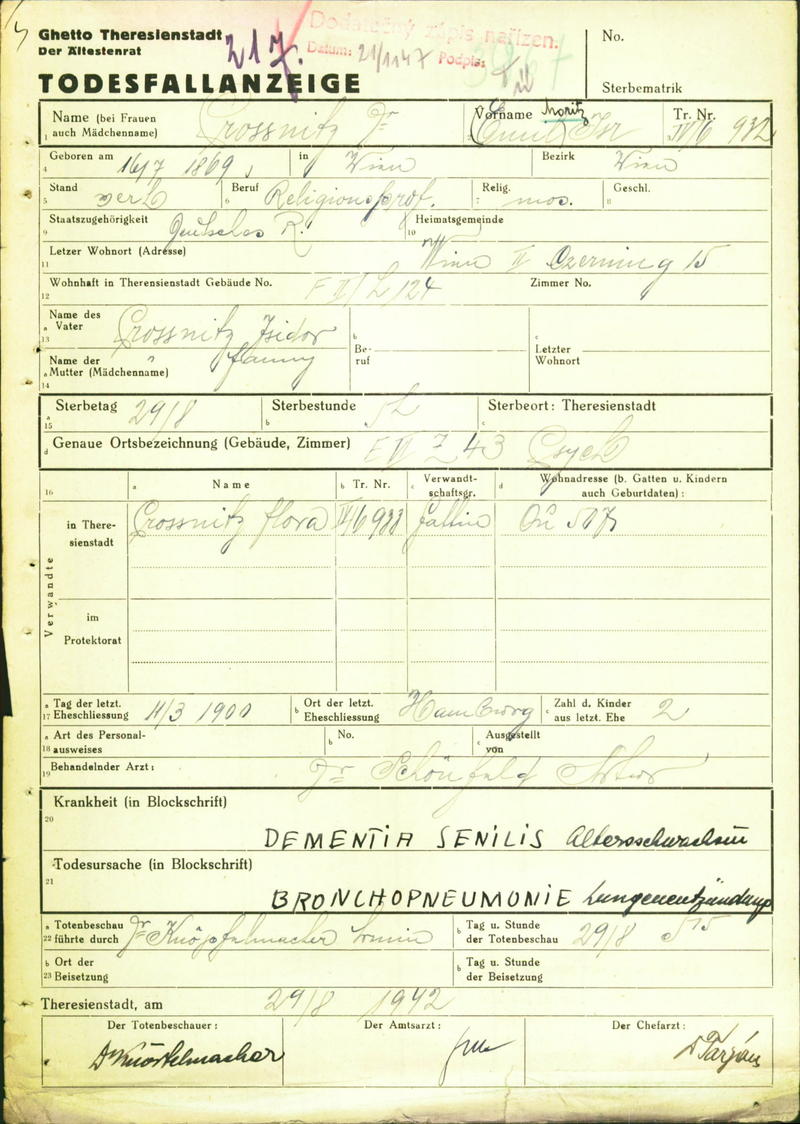 Ghetto Theresienstadt
Der Ältestenrat
217.
Dodatečný zápis nařízen.
Datum: 21/1 47 Podpis:
No.
TODESFALLANZEIGE
Sterbematrik
Name (bei Frauen auch Mädchenname) Grossnitz Dr
Vorname Moritz Emil Isr
Tr. Nr. IV/6 932
1
4 Geboren am 16/7 1869 in Wien Bezirk Wien
5 Stand verh 6 Beruf Religionsprof. 7 Relig. mos. 8 Geschl.
9 Staatszugehörigkeit Deutsches R. 10 Heimatsgemeinde
11 Letzer Wohnort (Adresse) Wien II Czerning 15
12 Wohnhaft in Theresienstadt Gebäude No. L 124 Zimmer No.
13 a Name des Vater Grossnitz Isidor b Beruf c Letzter Wohnort
14 a Name der Mutter (Mädchenname) " Fanny
15 a Sterbetag 29/8 b Sterbestunde c Sterbeort: Theresienstadt
d Genaue Ortsbezeichnung (Gebäude, Zimmer) E VI Z 43 Psych
16 a Name b Tr. Nr. c Verwandtschaftsgr. d Wohnadresse (b. Gatten u. Kindern auch Geburtdaten):
Verwandte
in Theresienstadt Grossnitz Flora IV/6 933 Gattin
im Protektorat
17 a Tag der letzt. Eheschliessung 11/3 1900 b Ort der letzt. Eheschliessung Hamburg c Zahl d. Kinder aus letzt. Ehe 2
18 a Art des Personalausweises b No. c Ausgestellt von
19 Behandelnder Arzt: Dr Schönfeld Artur
Krankheit (in Blockschrift)
20 DEMENTIA SENILIS Altersschwachsinn
Todesursache (in Blockschrift)
21 BRONCHOPNEUMONIE Lungenentzündung
22 a Totenbeschau führte durch Dr Knöpfelmacher Armin b Tag u. Stunde der Totenbeschau 29/8
23 b Ort der Beisetzung b Tag u. Stunde der Beisetzung
Theresienstadt, am 29/8 1942
Der Totenbeschauer: Der Amtsarzt: Der Chefarzt: